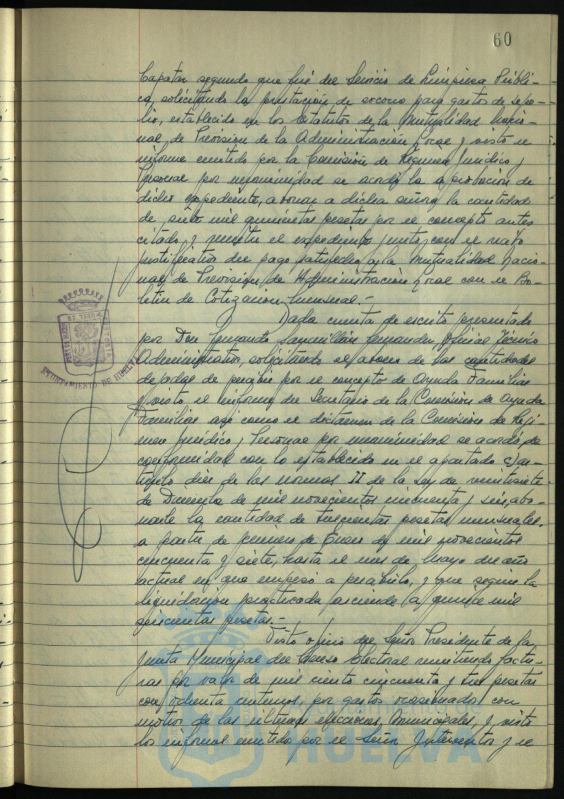 60
Capataz segundo que fué del Servicio de Limpieza Públi-
ca, solicitando la prestación de socorro para gastos de sepe-
lio, establecido en los Estatutos de la Mutualidad Nacio-
nal de Previsión de la Administración Local y visto el
informe emitido por la Comisión de Régimen Jurídico y
Personal por unanimidad se acordó la aprobación de
dicho expediente, abonar a dicha señora la cantidad
de mil quinientas pesetas por el concepto antes
citado, y remitir el expediente junto con el recibo
justificativo del pago satisfecho a la Mutualidad Nacio-
nal de Previsión de Administración Local con el Bo-
letín de Cotización mensual.-
Dada cuenta de escrito presentado
por Don Fernando Oficial Técnico
Administrativo, solicitando el abono de las cantidades
dejadas de percibir por el concepto de Ayuda Familiar
y visto el informe del Secretario de la Comisión de Ayuda
Familiar así como el dictamen de la Comisión de Régi-
men Jurídico y Personal por unanimidad se acordó de
conformidad con lo establecido en el apartado
diez de las normas II de la Ley de veintisiete
de Diciembre de mil novecientos cincuenta y seis, abo-
narle la cantidad de trescientas pesetas mensuales
a partir de primero de Enero de mil novecientos
cincuenta y siete, hasta el mes de Mayo del año
actual en que empezó a percibirlo, y que según la
liquidación practicada asciende a quince mil
pesetas.-
Visto oficio del Señor Presidente de la
Junta Municipal del Censo Electoral remitiendo factu-
ras por valor de mil ciento cincuenta y tres pesetas
con ochenta céntimos, por gastos ocasionados con
motivo de las últimas elecciones Municipales, y visto
los informes emitido por el Señor Interventor y el
AYUNTAMIENTO DE HUELVA
HUELVA